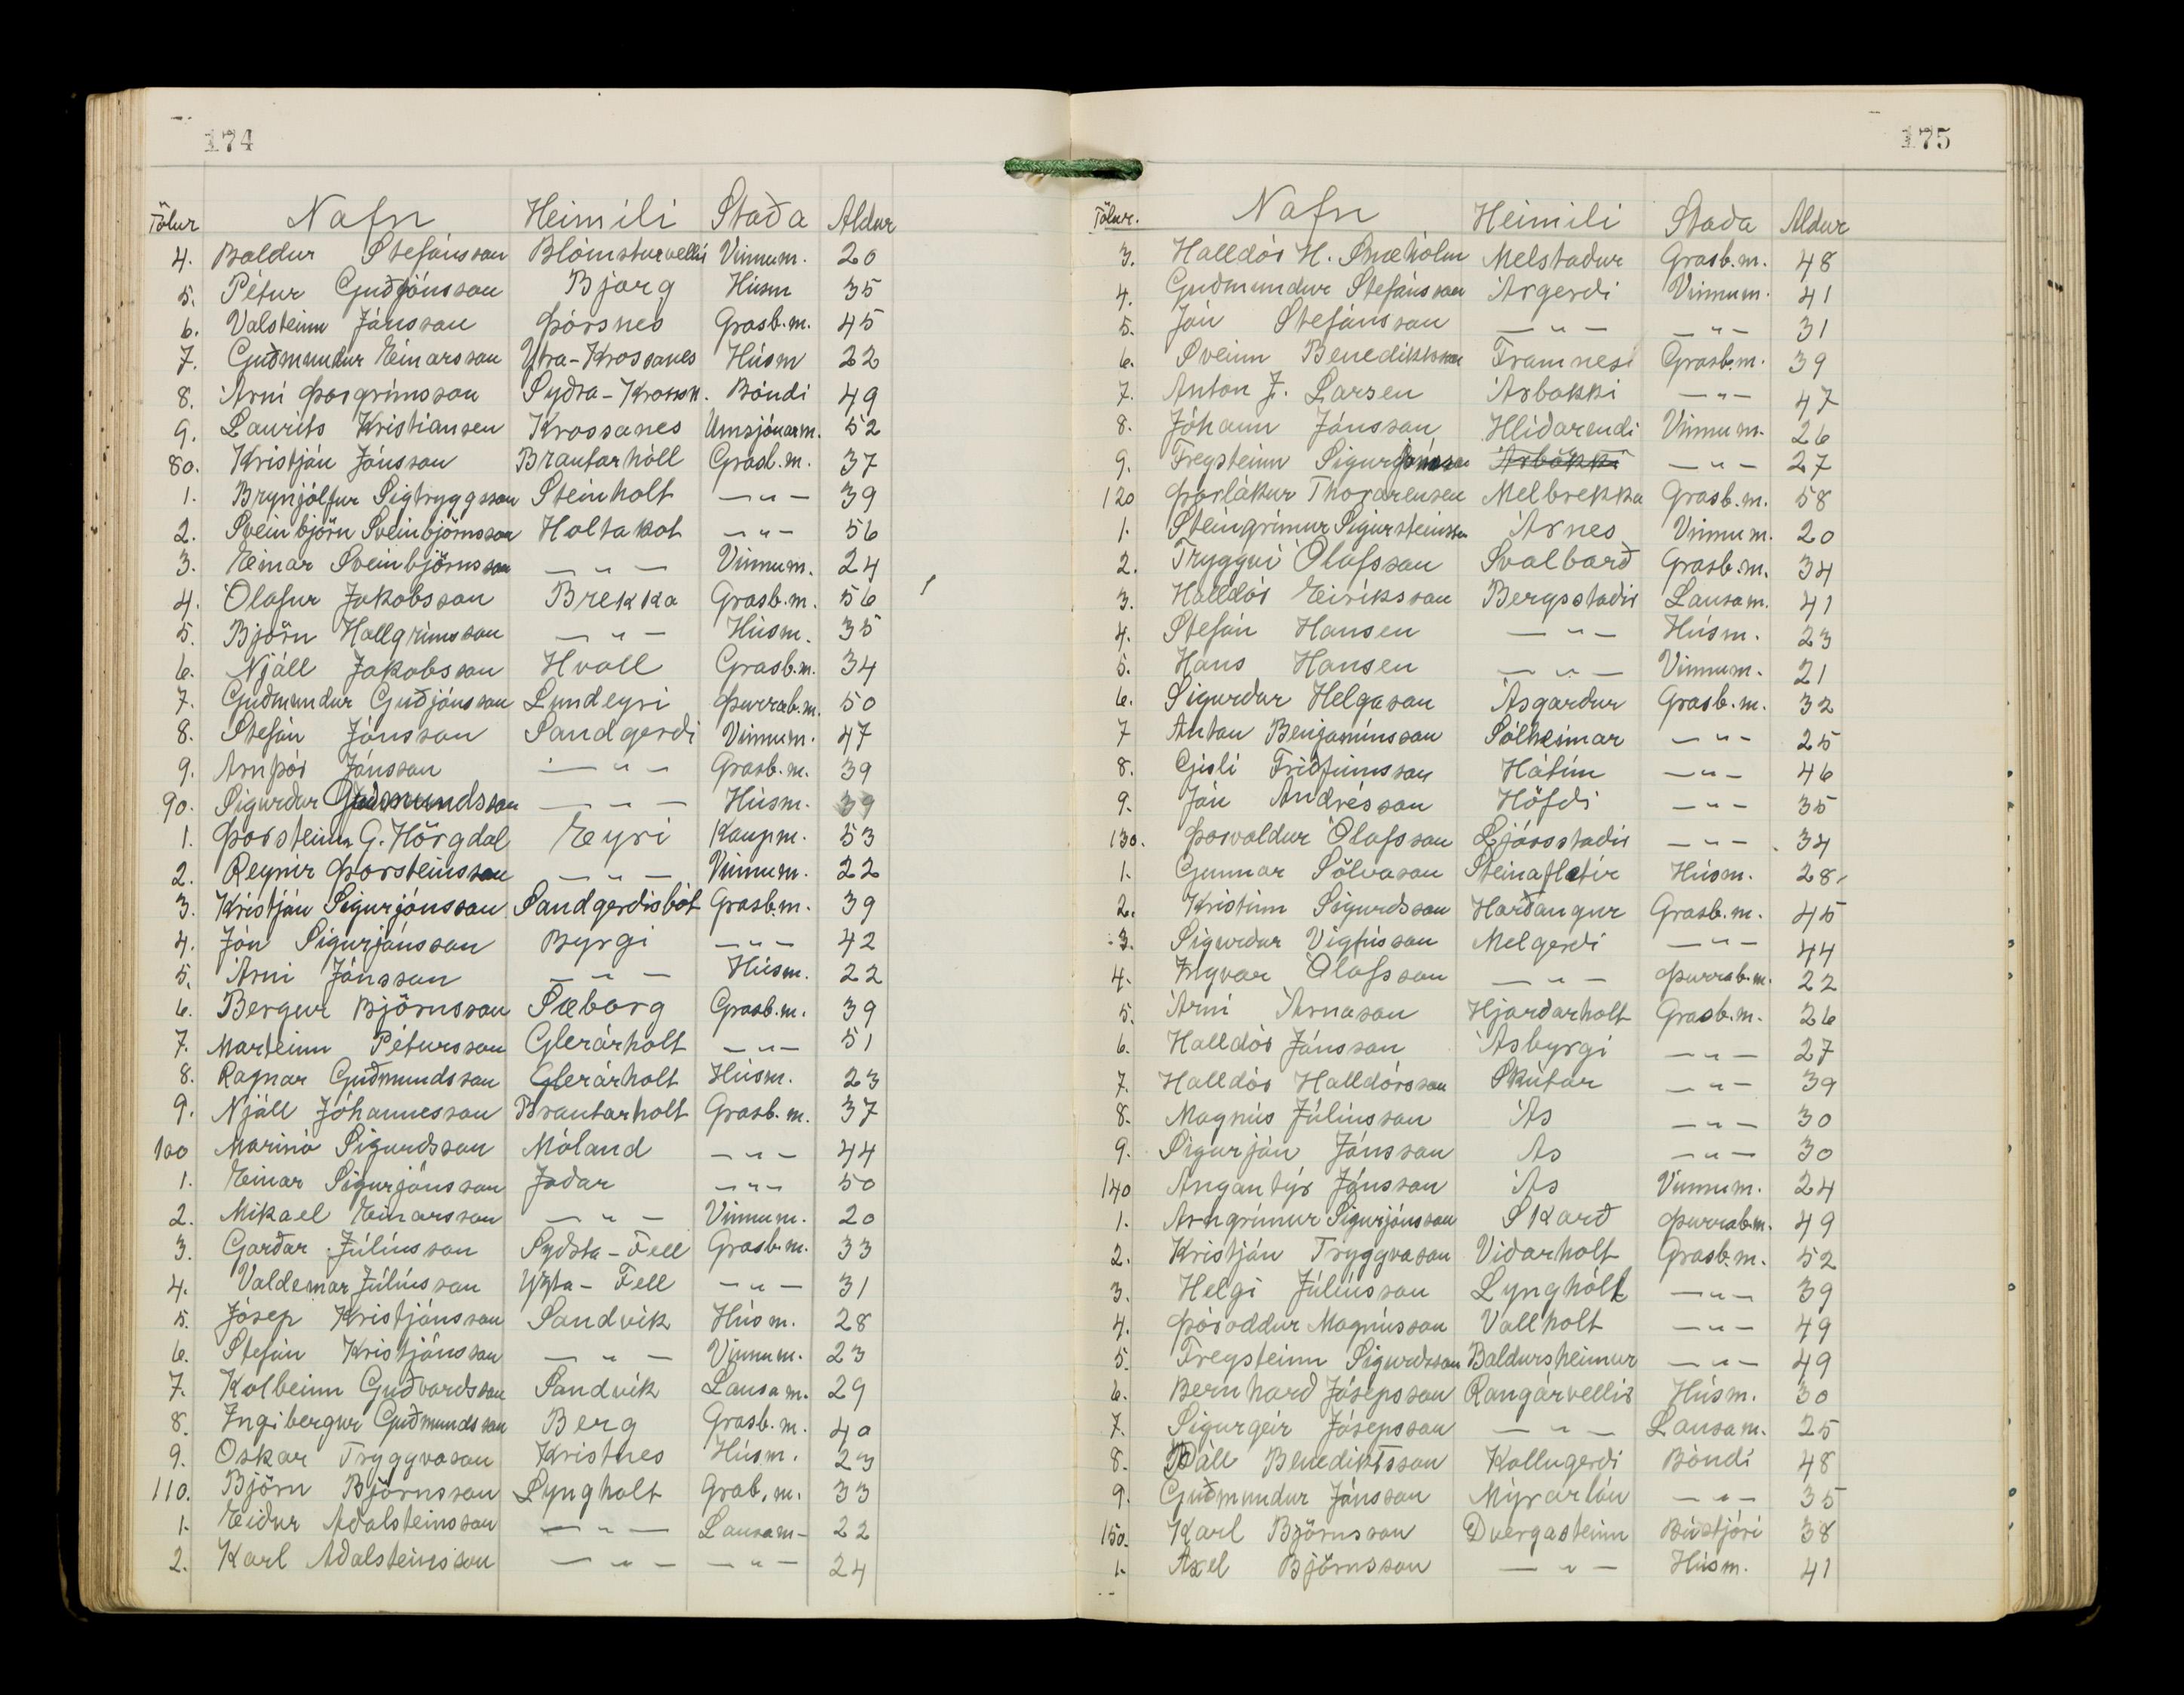 174
Tölur Nafn Heimili Staða Aldur
4. Baldur Stefánsson Blómsturvellir Vinnum. 20
5. Pétur Guðjónsson Bjarg Húsm 35
6. Valsteinn Jónsson Þórsnes Grasb.m. 45
7. Guðmundur Einarsson Ytra-Krossanes Húsm 22
8. Árni Þorgrímsson Syðra-Krossn. Bóndi 49
9. Laurits Kristiansen Krossanes Umsjónarm. 52
80. Kristján Jónsson Brautarhóll Grasb.m. 37
1. Brynjólfur Sigtryggsson Steinholt — " — 39
2. Sveinbjörn Sveinbjörnsson Holtakot — " — 56
3. Einar Sveinbjörnsson — " — Vinnum. 24
4. Ólafur Jakobsson Brekka Grasb.m. 56
5. Björn Hallgrímsson — " — Húsm. 35
6. Njáll Jakobsson Hvoll Grasb.m. 34
7. Guðmundur Guðjónsson Lundeyri Þurrab.m. 50
8. Stefán Jónsson Sandgerði Vinnum. 47
9. Arnþór Jónsson — " — Grasb.m. 39
90. Sigurður Guðmundsson — " — Húsm. 39
1. Þorsteinn G. Hörgdal Eyri Kaupm. 53
2. Reynir Þorsteinsson — " — Vinnum. 22
3. Kristján Sigurjónsson Sandgerðisbót Grasb.m. 39
4. Jón Sigurjónsson Byrgi — " — 42
5. Árni Jónsson — " — Húsm. 22
6. Bergur Björnsson Sæborg Grasb.m. 39
7. Marteinn Pétursson Glerárholt — " — 51
8. Ragnar Guðmundsson Glerárholt Húsm. 23
9. Njáll Jóhannesson Brautarholt Grasb.m. 37
100 Marinó Sigurðsson Móland — " — 44
1. Einar Sigurjónsson Jaðar — " — 50
2. Mikael Einarsson — " — Vinnum. 20
3. Garðar Júlíusson Syðsta-Fell Grasb.m. 33
4. Valdemar Júlíusson Yzta-Fell — " — 31
5. Jósep Kristjánsson Sandvík Húsm. 28
6. Stefán Kristjánsson — " — Vinnum. 23
7. Kolbeinn Guðvarðsson Sandvík Lausam. 29
8. Ingibergur Guðmundsson Berg Grasb.m. 40
9. Oskar Tryggvason Kristnes Húsm. 23
110. Björn Björnsson Lyngholt Grab.m. 33
1. Eiður Aðalsteinsson — " — Lausam- 22
2. Karl Aðalsteinsson — " — — " — 24
175
Tölur. Nafn Heimili Staða Aldur
3. Halldór H. Snæhólm Melstaður Grasb.m. 48
4. Guðmundur Stefánsson Árgerði Vinnum. 41
5. Jón Stefánsson — " — — " — 31
6. Sveinn Benediktsson Framnesi Grasb.m. 39
7. Anton J. Larsen Árbakki — " — 47
8. Jóhann Jónsson Hlíðarendi Vinnum. 26
9. Freysteinn Sigurjónsson Árbakki — " — 27
120 Þorlákur Thorarensen Melbrekka Grasb.m. 58
1. Steingrímur Sigursteinsson Árnes Vinnum. 20
2. Tryggvi Ólafsson Svalbarð Grasb.m. 34
3. Halldór Eiríksson Bergsstaðir Lausam. 41
4. Stefán Hansen — " — Húsm. 23
5. Hans Hansen — " — Vinnum. 21
6. Sigurður Helgason Ásgarður Grasb.m. 32
7 Anton Benjamínsson Sólheimar — " — 25
8. Gísli Friðfinnsson Hátún — " — 46
9. Jón Andrésson Höfði — " — 35
130. Þorvaldur Ólafsson Ljósstaðir — " — 34
1. Gunnar Sölvason Steinafletir Húsm. 28
2. Kristinn Sigurðsson Harðangur Grasb.m. 45
3. Sigurður Vigfússon Melgerði — " — 44
4. Ingvar Ólafsson — " — Þurrab.m. 22
5. Árni Árnason Hjarðarholt Grasb.m. 26
6. Halldór Jónsson Ásbyrgi — " — 27
7. Halldór Halldórsson Skútar — " — 39
8. Magnús Júlíusson Ás — " — 30
9. Sigurjón Jónsson Ás — " — 30
140 Angantýr Jónsson Ás Vinnum. 24
1. Arngrímur Sigurjónsson Skarð Þurrab.m. 49
2. Kristján Tryggvason Viðarholt Grasb.m. 52
3. Helgi Júlíusson Lynghóll — " — 39
4. Þóroddur Magnússon Vallholt — " — 49
5. Freysteinn Sigurðsson Baldursheimur — " — 49
6. Bernharð Jósepsson Rangárvellir Húsm. 30
7. Sigurgeir Jósepsson — " — Lausam. 25
8. Páll Benediktsson Kollugerði Bóndi 48
9. Guðmundur Jónsson Mýrarlón — " — 35
150. Karl Björnsson Dvergasteinn Bústjóri 38
1. Axel Björnsson — " — Húsm. 41